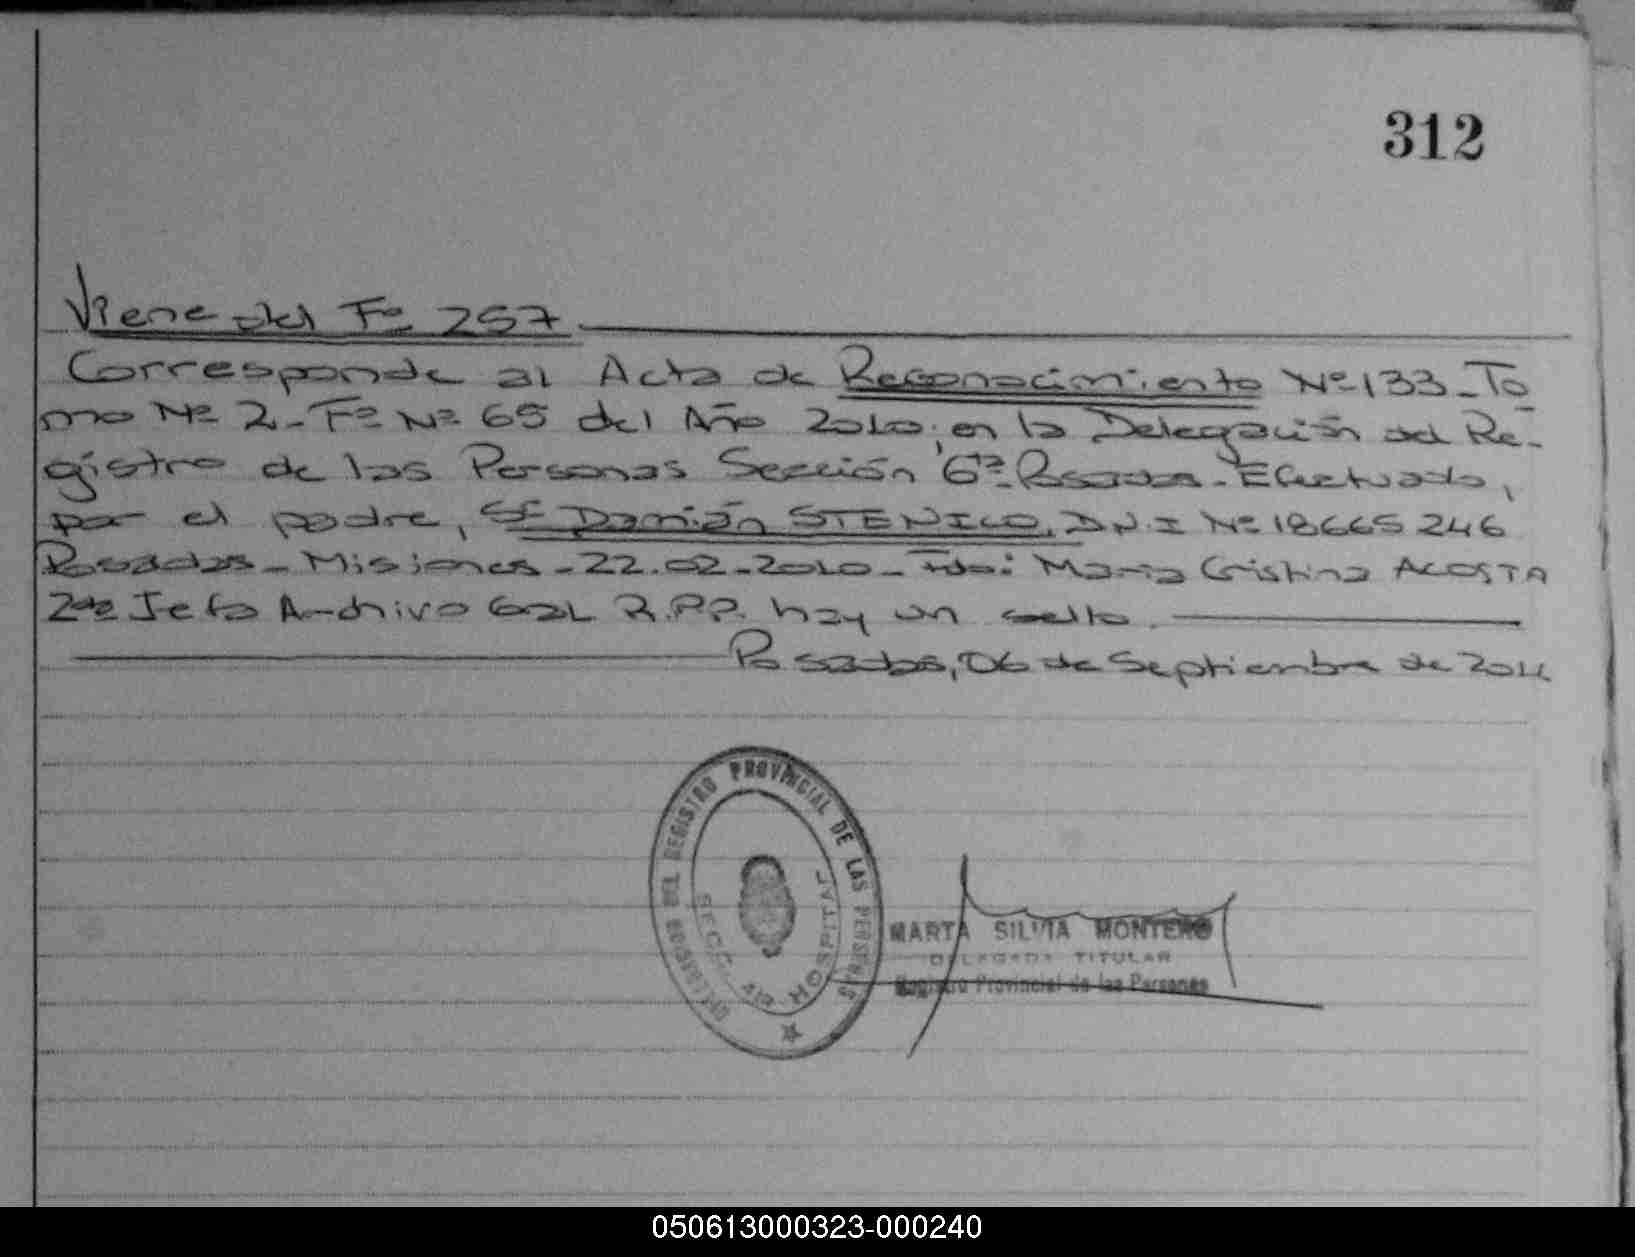 312
Viene del Fº 257
Corresponde al Acta de Reconocimiento Nº 133 - To
mo Nº 2 - Fº Nº 65 del Año 2010, en la Delegación del Re-
gistro de las Personas Sección 6ta Posadas - Efectuado,
por el padre, Sr Damián STENICO, DNI Nº 18665246
Posadas - Misiones - 22.02.2010 - Fdo: Maria Cristina ACOSTA
2da Jefa Archivo Gral R.P.P. hay un sello.
Posadas, 06 de Septiembre de
DELEGACION DEL REGISTRO PROVINCIAL DE LAS PERSONAS
SECC. 4ta HOSPITAL
MARTA SILVIA MONTERO
DELEGADA TITULAR
Registro Provincial de las Personas
050613000323-000240